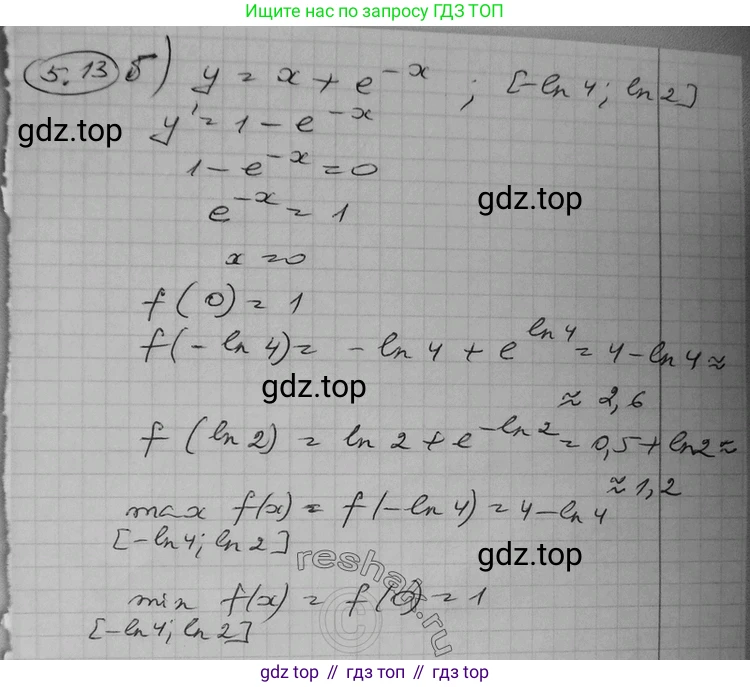 Ищите нас по запросу ГДЗ ТОП
5.13 б) y = x + e^{-x} ; [-ln 4; ln 2]
y' = 1 - e^{-x}
gdz.top
1 - e^{-x} = 0
gdz.top
e^{-x} = 1
x = 0
f(0) = 1
f(-ln 4) = -ln 4 + e^{ln 4} = 4 - ln 4 ≈
gdz.top
≈ 2,6
f(ln 2) = ln 2 + e^{-ln 2} = 0,5 + ln 2 ≈
≈ 1,2
max f(x) = f(-ln 4) = 4 - ln 4
[-ln 4; ln 2]
gdz.top
reshak.ru
min f(x) = f(0) = 1
[-ln 4; ln 2]
gdz top // гдз топ // gdz top